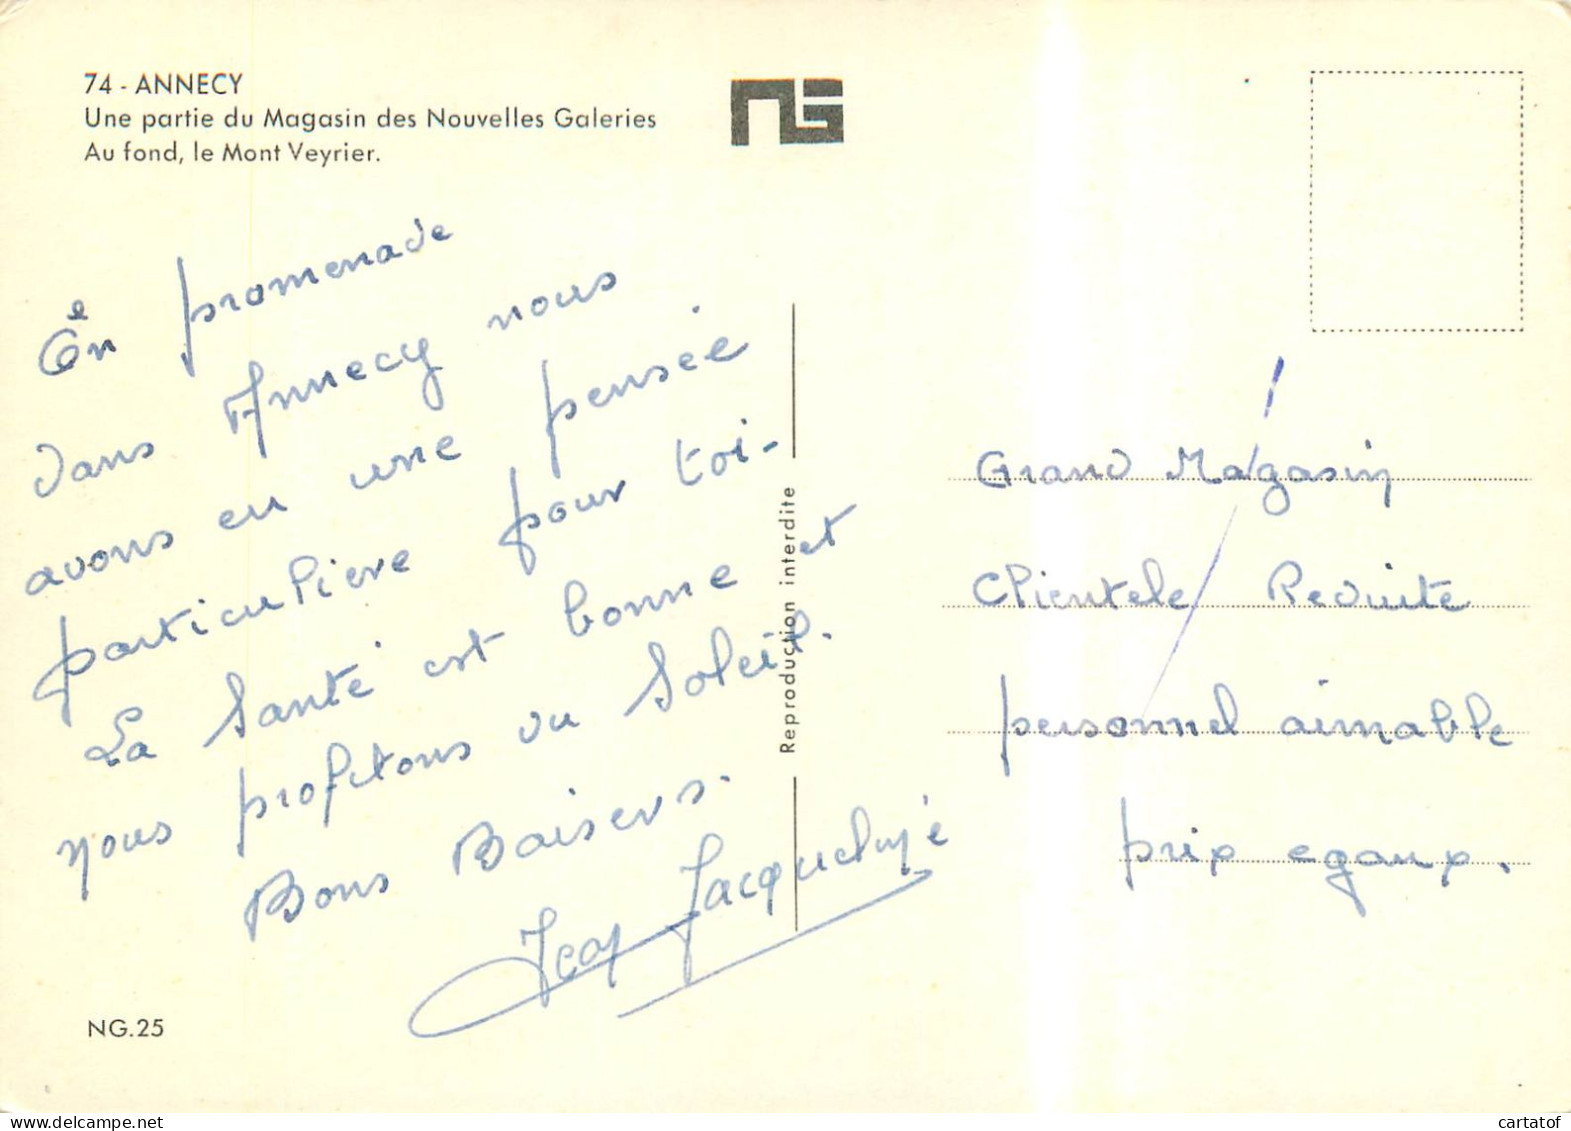 74 - ANNECY
Une partie du Magasin des Nouvelles Galeries
Au fond, le Mont Veyrier.
NG
En promenade
dans Annecy nous
avons eu une pensée
particuliere pour toi-
La Santé est bonne et
nous profitons du Soleil.
Bons Baisers.
Jean Jacqueluyé
Reproduction interdite
Grand Magasin
Clientele Reduite
personnel aimable
prix egaux.
NG.25
cartatof